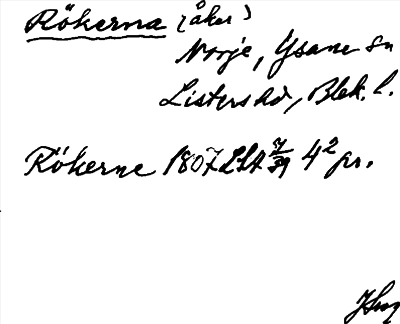 Rökerna (åker)
Norje, Ysane sn
Listers hd, Blek. l.
Rökerne 1807 LSA 4² pr.